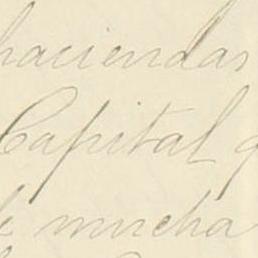 haciendas
Capital
mucha